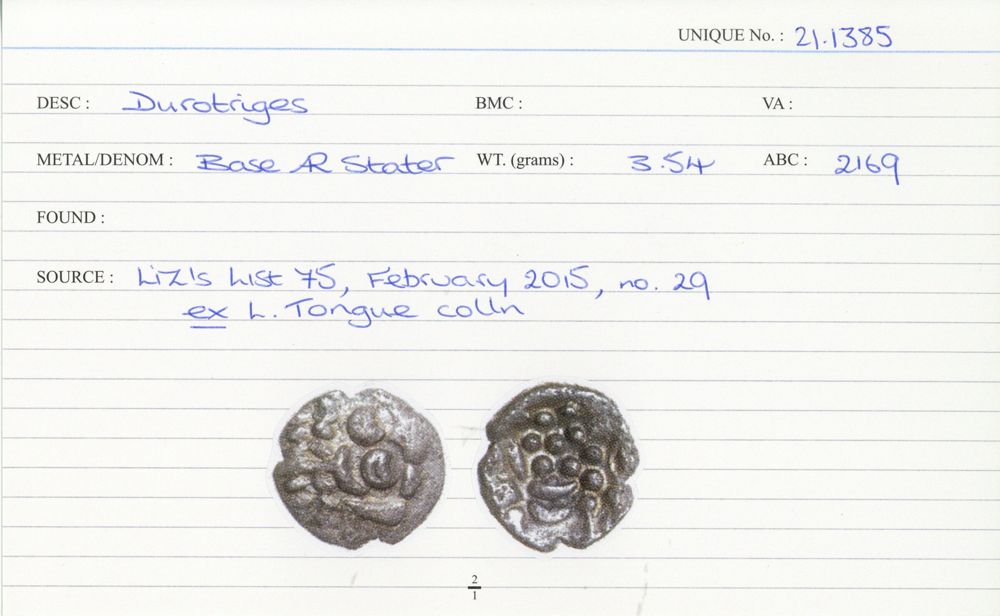 UNIQUE No. : 21.1385
DESC : Durotriges BMC : VA :
METAL/DENOM : Base AR Stater WT. (grams) : 3.54 ABC : 2169
FOUND :
SOURCE : Liz's List 75, February 2015, no. 29
ex L. Tongue colln
2
1